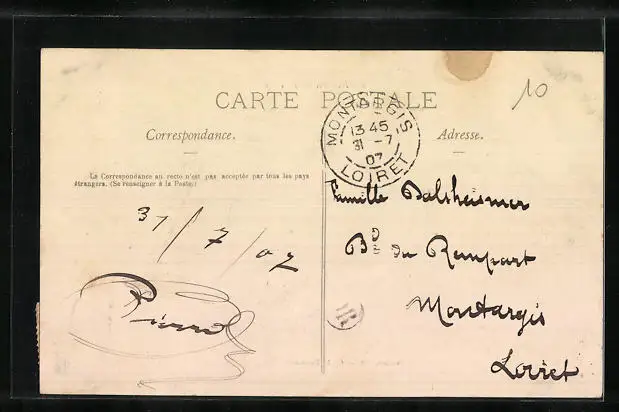 10
CARTE POSTALE
Correspondance.
Adresse.
MONTARGIS
13 45
31 - 7
07
LOIRET
La Correspondance au recto n'est pas acceptée par tous les pays
étrangers. (Se renseigner à la Poste.)
31/7/07
Pierrot
Famille Dalsheimer
Bd du Rempart
Montargis
Loiret